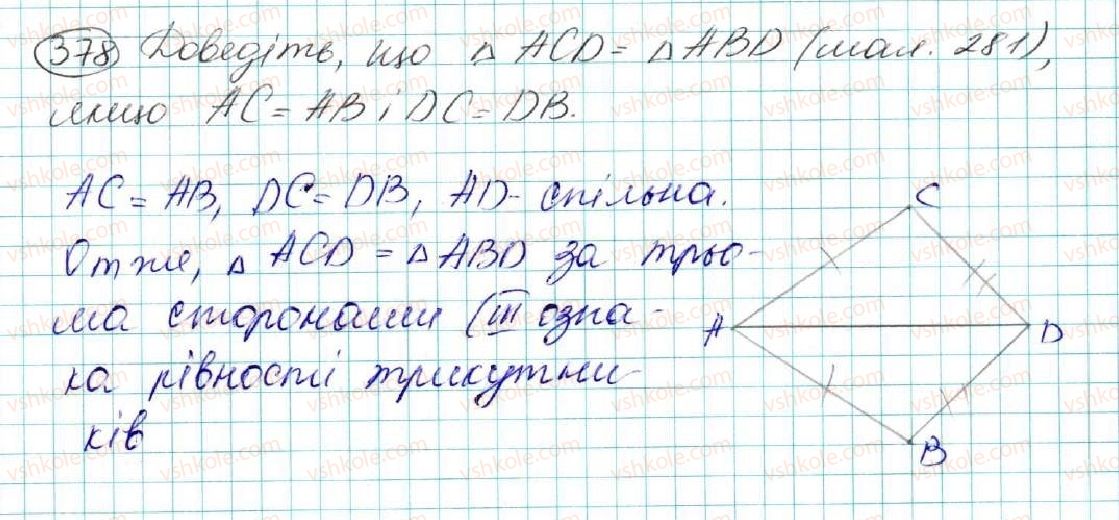 378 Доведіть, що △ ACD = △ ABD (мал. 281),
якщо AC = AB і DC = DB.
AC = AB, DC = DB, AD - спільна.
Отже, △ ACD = △ ABD за трьо-
ма сторонами (III озна-
ка рівності трикутни-
ків
C
A
D
B
vshkole.com